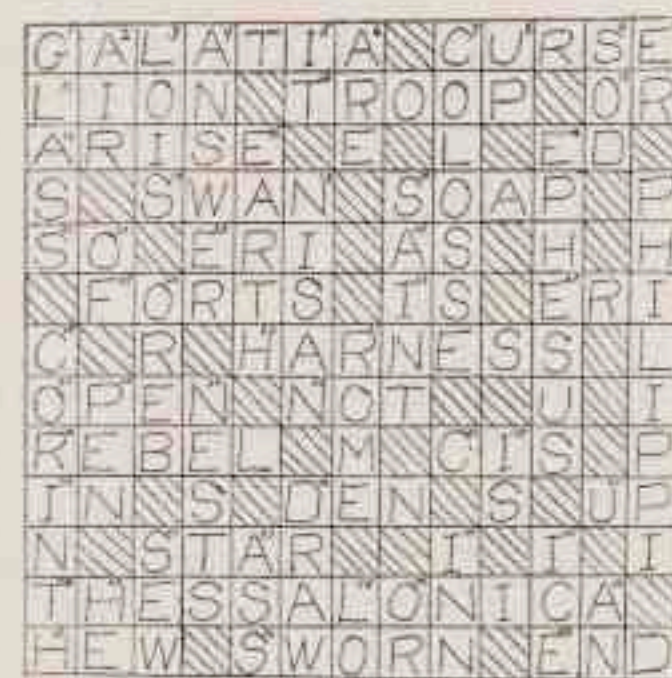 GALATIA CURSE
LION TROOP OR
ARISE E L ED
S SWAN SOAP P
SO ERI AS H H
FORTS IS ERI
C R HARNESS L
OPEN NOT U I
REBEL M CIS P
IN S DEN S UP
N STAR I I I
THESSALONICA
HEW SWORN END